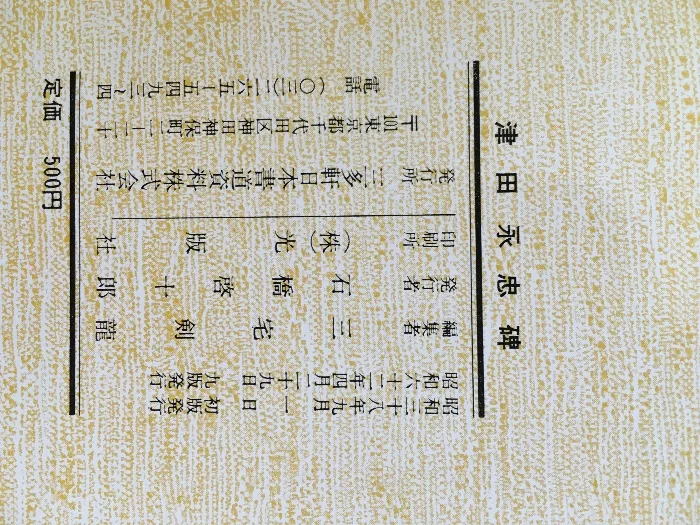 津田永忠碑
昭和三十八年九月一日 初版発行
昭和六十二年四月二十九日 九版発行
編集者 三宅剣龍
発行者 石橋啓十郎
印刷所 (株)光版社
発行所 三多軒日本書道資料株式会社
〒101 東京都千代田区神田神保町
電話 (〇三)二六五-五四九三~四
定価 500円